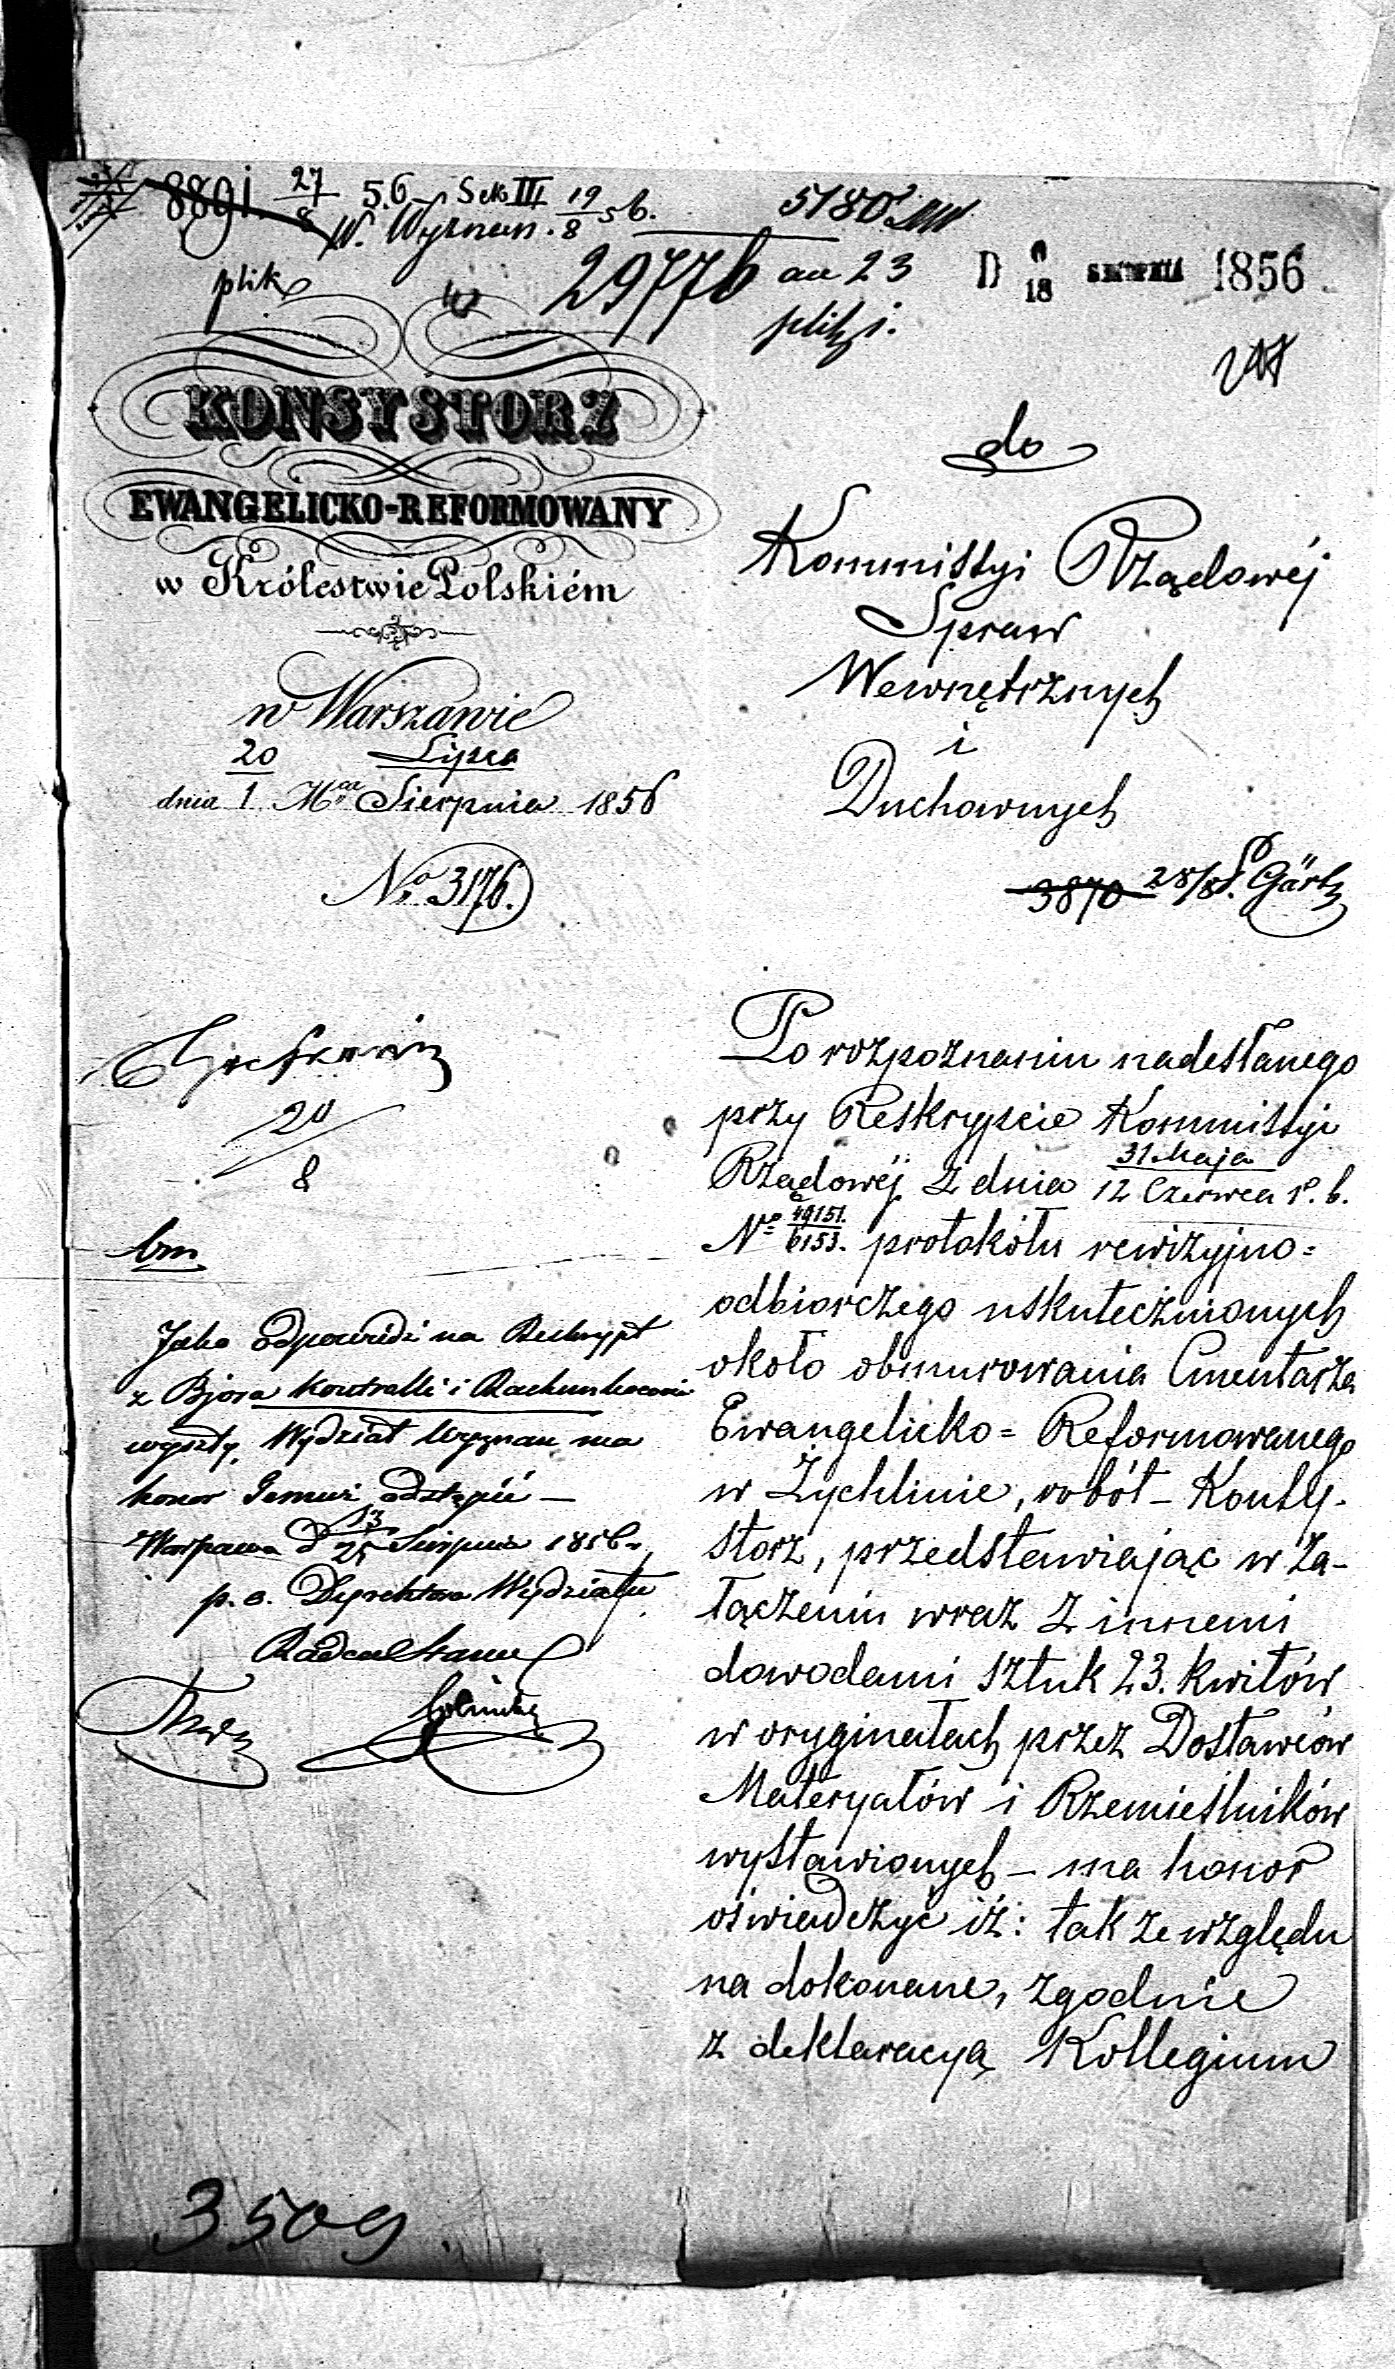 8891. 27/8 56 Sek III 19/8 56. 5180
W. Wyznan.
plik 29776 au 23 D 6/18 SIERPNIA 1856
plik i.
KONSYSTORZ
EWANGELICKO-REFORMOWANY
w Królestwie Polskiém
w Warszawie
20 Lipca
dnia 1 Mca Sierpnia 1856
No 3176.
do
Kommissyi Rządowéj
Spraw
Wewnętrznych
i
Duchownych
3870 28/8 Gärtz
20
8
Jako odpowiedź na Reskrypt
z Bjora Kontrolli i
wyszły, Wydział Wyznań ma
honor Jemuż odstąpić —
Warszawa d 13/25 Sierpnia 1856 r.
p. o. Dyrektora Wydziału
Radca Stanu
Po rozpoznaniu nadesłanego
przy Reskrypcie Kommissyi
Rządowéj z dnia 31 Maja / 12 Czerwca r. b.
No 49151./6153. protokółu rewizyjno=
odbiorczego uskutecznionych
około obmurowania Cmentarza
Ewangelicko=Reformowanego
w Żychlinie, robót — Konsy-
storz, przedstawiając w za-
łączeniu wraz z innemi
dowodami sztuk 23. kwitów
w oryginałach przez Dostawców
Materyałów i Rzemieślników
wystawionych — ma honor
oświadczyć iż: tak ze względu
na dokonane, zgodnie
z deklaracyą Kollegium
3509